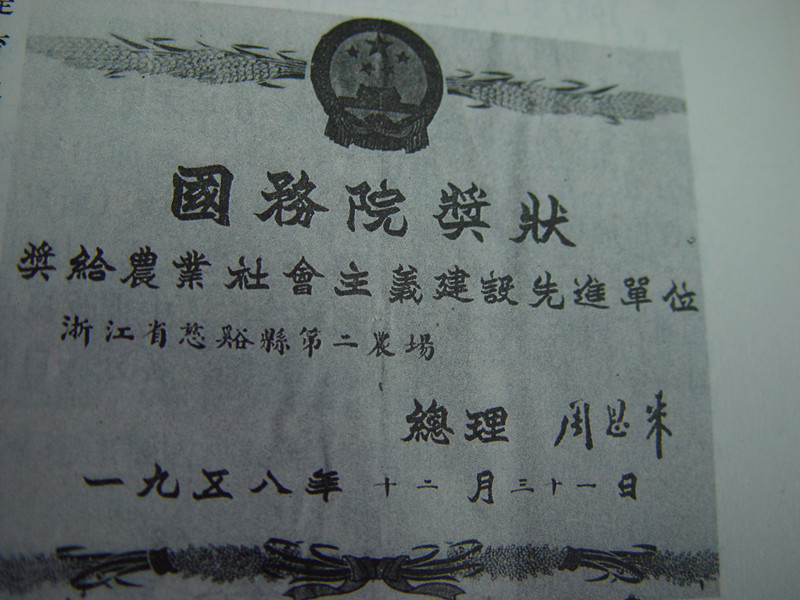 國務院獎狀
獎給農業社會主義建設先進單位
浙江省慈谿縣第二農場
總理 周恩来
一九五八年 十二月三十一日